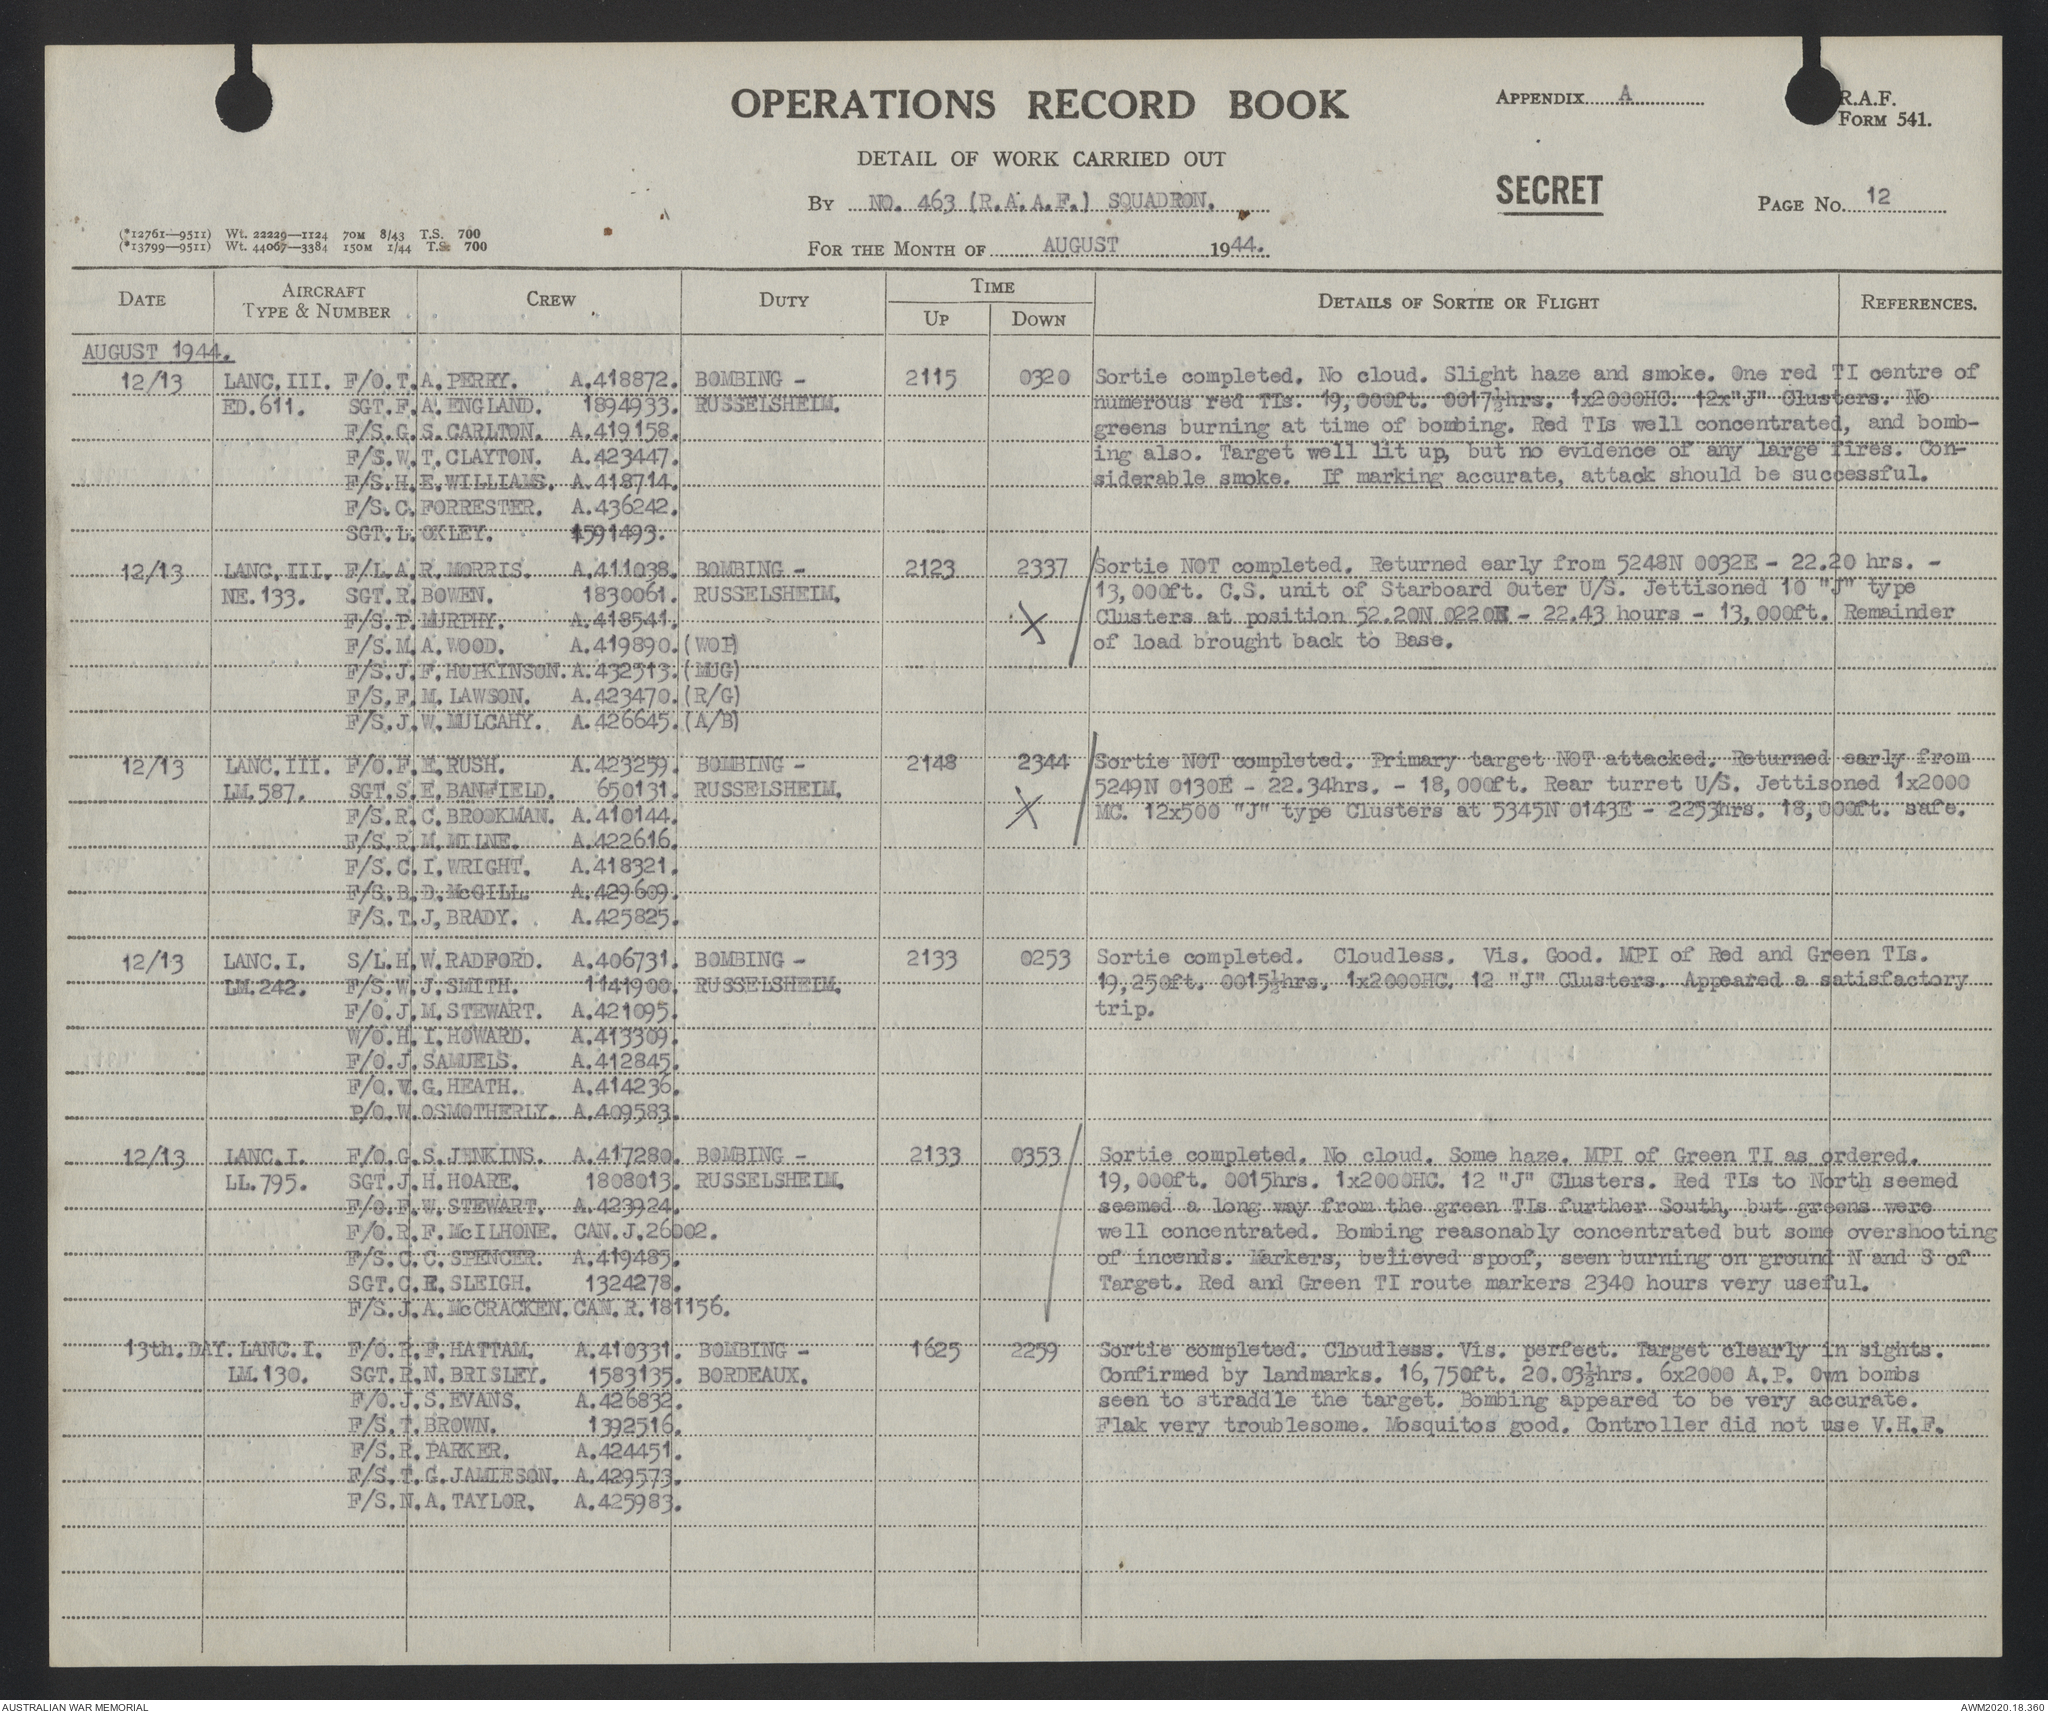 OPERATIONS RECORD BOOK
APPENDIX A
R.A.F.
FORM 541.
DETAIL OF WORK CARRIED OUT
SECRET
BY NO. 463 (R.A.A.F.) SQUADRON.
PAGE NO. 12
(*12761—9511) Wt. 22229—1124 70M 8/43 T.S. 700
(*13799—9511) Wt. 44067—3384 150M 1/44 T.S. 700
FOR THE MONTH OF AUGUST 1944.
DATE
AIRCRAFT TYPE & NUMBER
CREW
DUTY
TIME
UP
DOWN
DETAILS OF SORTIE OR FLIGHT
REFERENCES.
AUGUST 1944.
12/13 LANC.III. F/O.T.A.PERRY. A.418872. BOMBING - 2115 0320 Sortie completed. No cloud. Slight haze and smoke. One red TI centre of
ED.611. SGT.F.A.ENGLAND. 1894933. RUSSELSHEIM. numerous red TIs. 19,000ft. 0017½hrs. 1x2000HC. 12x"J" Clusters. No
F/S.G.S.CARLTON. A.419158. greens burning at time of bombing. Red TIs well concentrated, and bomb-
F/S.W.T.CLAYTON. A.423447. ing also. Target well lit up, but no evidence of any large fires. Con-
F/S.H.E.WILLIAMS. A.418714. siderable smoke. If marking accurate, attack should be successful.
F/S.C.FORRESTER. A.436242.
SGT.L.OKLEY. 1591493.
12/13 LANC.III. F/L.A.R.MORRIS. A.411038. BOMBING - 2123 2337 Sortie NOT completed. Returned early from 5248N 0032E - 22.20 hrs. -
NE.133. SGT.R.BOWEN. 1830061. RUSSELSHEIM. 13,000ft. C.S. unit of Starboard Outer U/S. Jettisoned 10 "J" type
F/S.P.MURPHY. A.418541. X Clusters at position 52.20N 0220E - 22.43 hours - 13,000ft. Remainder
F/S.M.A.WOOD. A.419890.(WOP) of load brought back to Base.
F/S.J.F.HOPKINSON.A.432513.(MUG)
F/S.F.M.LAWSON. A.423470.(R/G)
F/S.J.W.MULCAHY. A.426645.(A/B)
12/13 LANC.III. F/O.F.E.RUSH. A.423259. BOMBING - 2148 2344 Sortie NOT completed. Primary target NOT attacked. Returned early from
LM.587. SGT.S.E.BANFIELD. 650131. RUSSELSHEIM. 5249N 0130E - 22.34hrs. - 18,000ft. Rear turret U/S. Jettisoned 1x2000
F/S.R.C.BROOKMAN. A.410144. X MC. 12x500 "J" type Clusters at 5345N 0143E - 2253hrs. 18,000ft. safe.
F/S.R.M.MILNE. A.422616.
F/S.C.I.WRIGHT. A.418321.
F/S.B.D.McGILL. A.429609.
F/S.T.J.BRADY. A.425825.
12/13 LANC.I. S/L.H.W.RADFORD. A.406731. BOMBING - 2133 0253 Sortie completed. Cloudless. Vis. Good. MPI of Red and Green TIs.
LM.242. F/S.W.J.SMITH. 1141900. RUSSELSHEIM. 19,250ft. 0015½hrs. 1x2000HC. 12 "J" Clusters. Appeared a satisfactory
F/O.J.M.STEWART. A.421095. trip.
W/O.H.I.HOWARD. A.413309.
F/O.J.SAMUELS. A.412845.
F/O.W.G.HEATH. A.414236.
P/O.W.OSMOTHERLY. A.409583.
12/13 LANC.I. F/O.G.S.JENKINS. A.417280. BOMBING - 2133 0353 Sortie completed. No cloud. Some haze. MPI of Green TI as ordered.
LL.795. SGT.J.H.HOARE. 1808013. RUSSELSHEIM. 19,000ft. 0015hrs. 1x2000HC. 12 "J" Clusters. Red TIs to North seemed
F/O.F.W.STEWART. A.423924. seemed a long way from the green TIs further South, but greens were
F/O.R.F.McILHONE. CAN.J.26002. well concentrated. Bombing reasonably concentrated but some overshooting
F/S.C.C.SPENCER. A.419485. of incends. Markers, believed spoof, seen burning on ground N and S of
SGT.C.E.SLEIGH. 1324278. Target. Red and Green TI route markers 2340 hours very useful.
F/S.J.A.McCRACKEN.CAN.R.181156.
13th.DAY. LANC.I. F/O.R.F.HATTAM. A.410331. BOMBING - 1625 2259 Sortie completed. Cloudless. Vis. perfect. Target clearly in sights.
LM.130. SGT.R.N.BRISLEY. 1583135. BORDEAUX. Confirmed by landmarks. 16,750ft. 20.03½hrs. 6x2000 A.P. Own bombs
F/O.J.S.EVANS. A.426832. seen to straddle the target. Bombing appeared to be very accurate.
F/S.T.BROWN. 1392516. Flak very troublesome. Mosquitos good. Controller did not use V.H.F.
F/S.R.PARKER. A.424451.
F/S.T.G.JAMIESON. A.429573.
F/S.N.A.TAYLOR. A.425983.
AUSTRALIAN WAR MEMORIAL
AWM2020.18.360